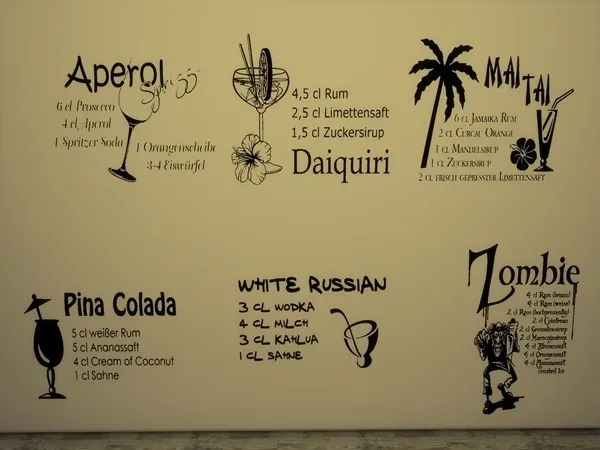 Aperol
Spritz
6 cl Prosecco
4 cl Aperol
1 Spritzer Soda
1 Orangenscheibe
3-4 Eiswürfel
4,5 cl Rum
2,5 cl Limettensaft
1,5 cl Zuckersirup
Daiquiri
MAI TAI
6 cl Jamaika Rum
2 cl Curcau Orange
1 cl Mandelsirup
1 cl Zuckersirup
2 cl frisch gepresster Limettensaft
Pina Colada
5 cl weißer Rum
5 cl Ananassaft
4 cl Cream of Coconut
1 cl Sahne
WHITE RUSSIAN
3 CL WODKA
4 CL MILCH
3 CL KAHLUA
1 CL SAHNE
Zombie
4 cl Rum (braun)
4 cl Rum (weiss)
2 cl Rum (hochprozentig)
2 cl Cointreau
2 cl Grenadinesirup
2 cl Maracujasirup
4 cl Zitronensaft
4 cl Orangensaft
4 cl Ananassaft
crushed Ice